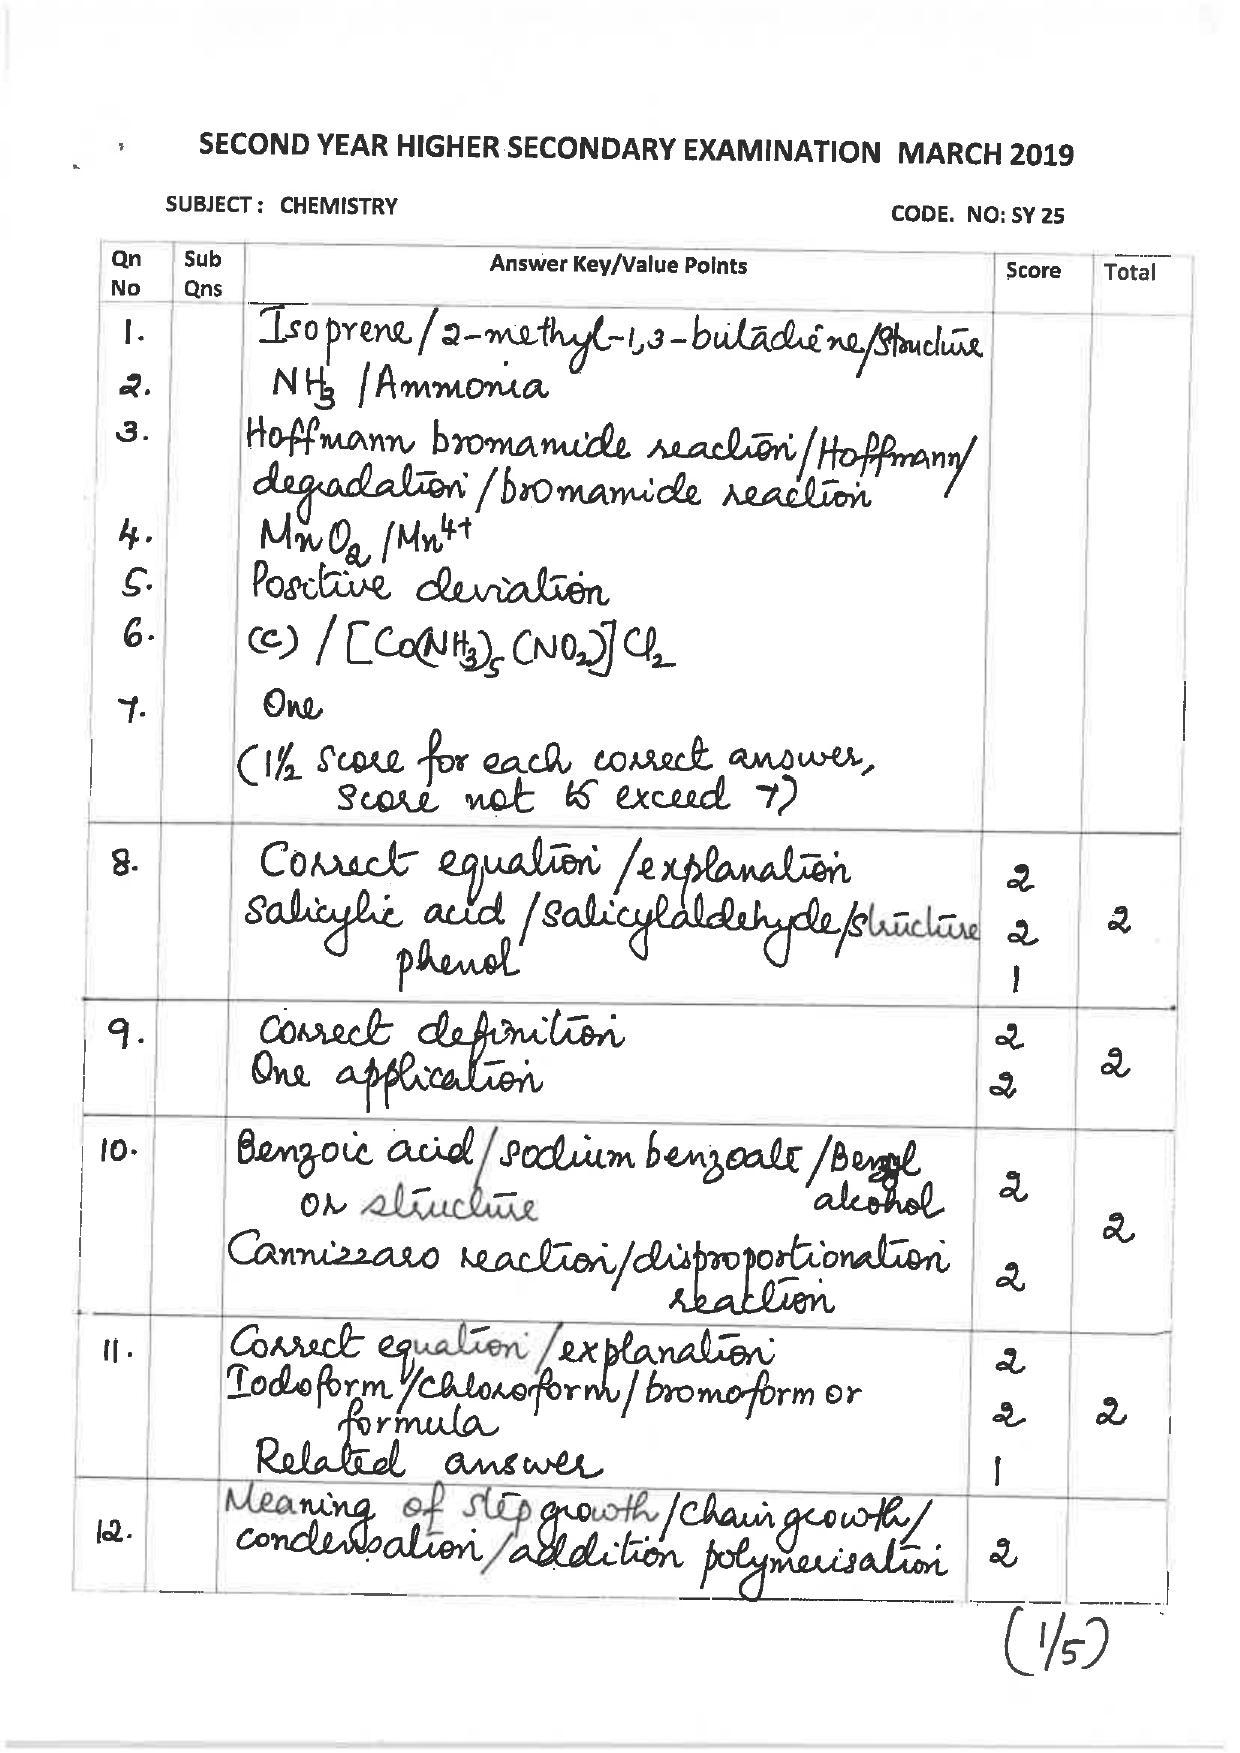 SECOND YEAR HIGHER SECONDARY EXAMINATION MARCH 2019
SUBJECT : CHEMISTRY
CODE. NO: SY 25
Qn No Sub Qns Answer Key/Value Points Score Total
1. Isoprene/2-methyl-1,3-butadiene/structure
2. NH3 /Ammonia
3. Hoffmann bromamide reaction/Hoffmann/
degradation/bromamide reaction
4. MnO2 /Mn4+
5. Positive deviation
6. (c) / [Co(NH3)5 (NO2)]Cl2
7. One
(1½ score for each correct answer,
score not to exceed 7)
8. Correct equation/explanation 2
Salicylic acid/salicylaldehyde/structure 2 2
phenol 1
9. Correct definition 2
One application 2 2
10. Benzoic acid/sodium benzoate/Benzyl
or structure alcohol 2
2
Cannizzaro reaction/disproportionation
reaction 2
11. Correct equation/explanation 2
Iodoform/chloroform/bromoform or
formula 2 2
Related answer 1
12. Meaning of step growth/chain growth/
condensation/addition polymerisation 2
(1/5)